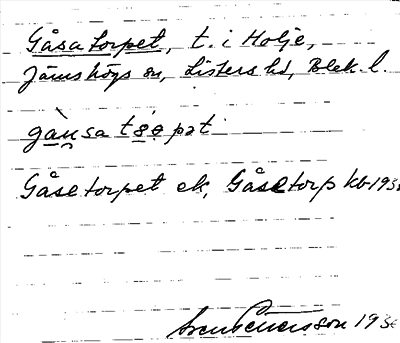 Gåsatorpet, t. i Holje,
Jämshögs sn, Listers hd, Blek. l.
gàn̥sa tɵpət
Gåsetorpet ek, Gåsetorp kb 193
Sven Benson 193